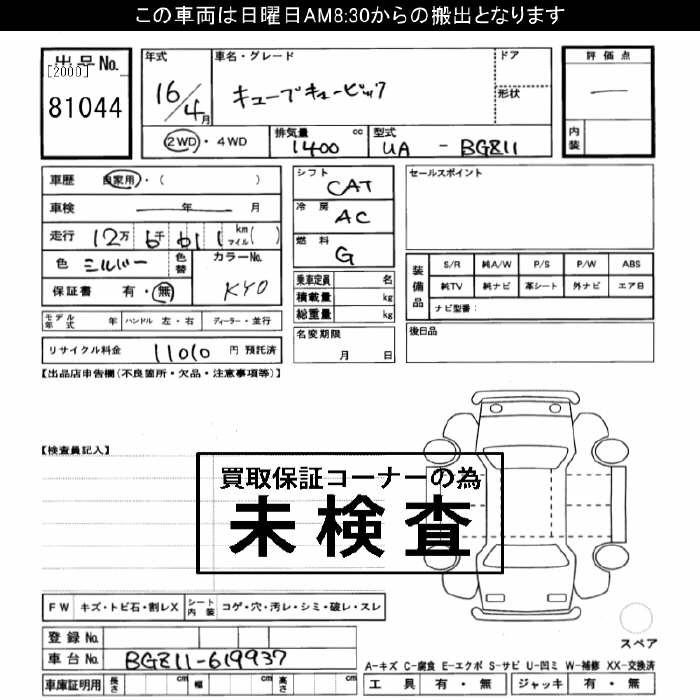 この車両は日曜日AM8:30からの搬出となります
出品No.
[2000]
81044
年式
16/4月
車名・グレード
キューブキュービック
ドア
形状
評価点
―
内装
2WD・4WD
排気量 cc
1400
型式
UA - BGZ11
車歴 自家用・( )
車検 年 月
走行 12万6千611 km マイル( )
色 シルバー
色替
カラーNo.
KY0
保証書 有・無
シフト
CAT
冷房
AC
燃料
G
乗車定員 名
積載量 kg
総重量 kg
名変期限
月 日
セールスポイント
装備品
S/R 純A/W P/S P/W ABS
純TV 純ナビ 革シート 外ナビ エアB
ナビ型番:
後日品
モデル年式 年 ハンドル 左・右 ディーラー・並行
リサイクル料金 11010 円 預託済
【出品店申告欄(不良箇所・欠品・注意事項等)】
【検査員記入】
買取保証コーナーの為
未検査
FW キズ・トビ石・割レX シート内装 コゲ・穴・汚レ・シミ・破レ・スレ
登録No.
車台No. BGZ11-619937
車庫証明用 長さ cm 幅 cm 高さ cm
スペア
A-キズ C-腐食 E-エクボ S-サビ U-凹ミ W-補修 XX-交換済
工具 有・無 ジャッキ 有・無